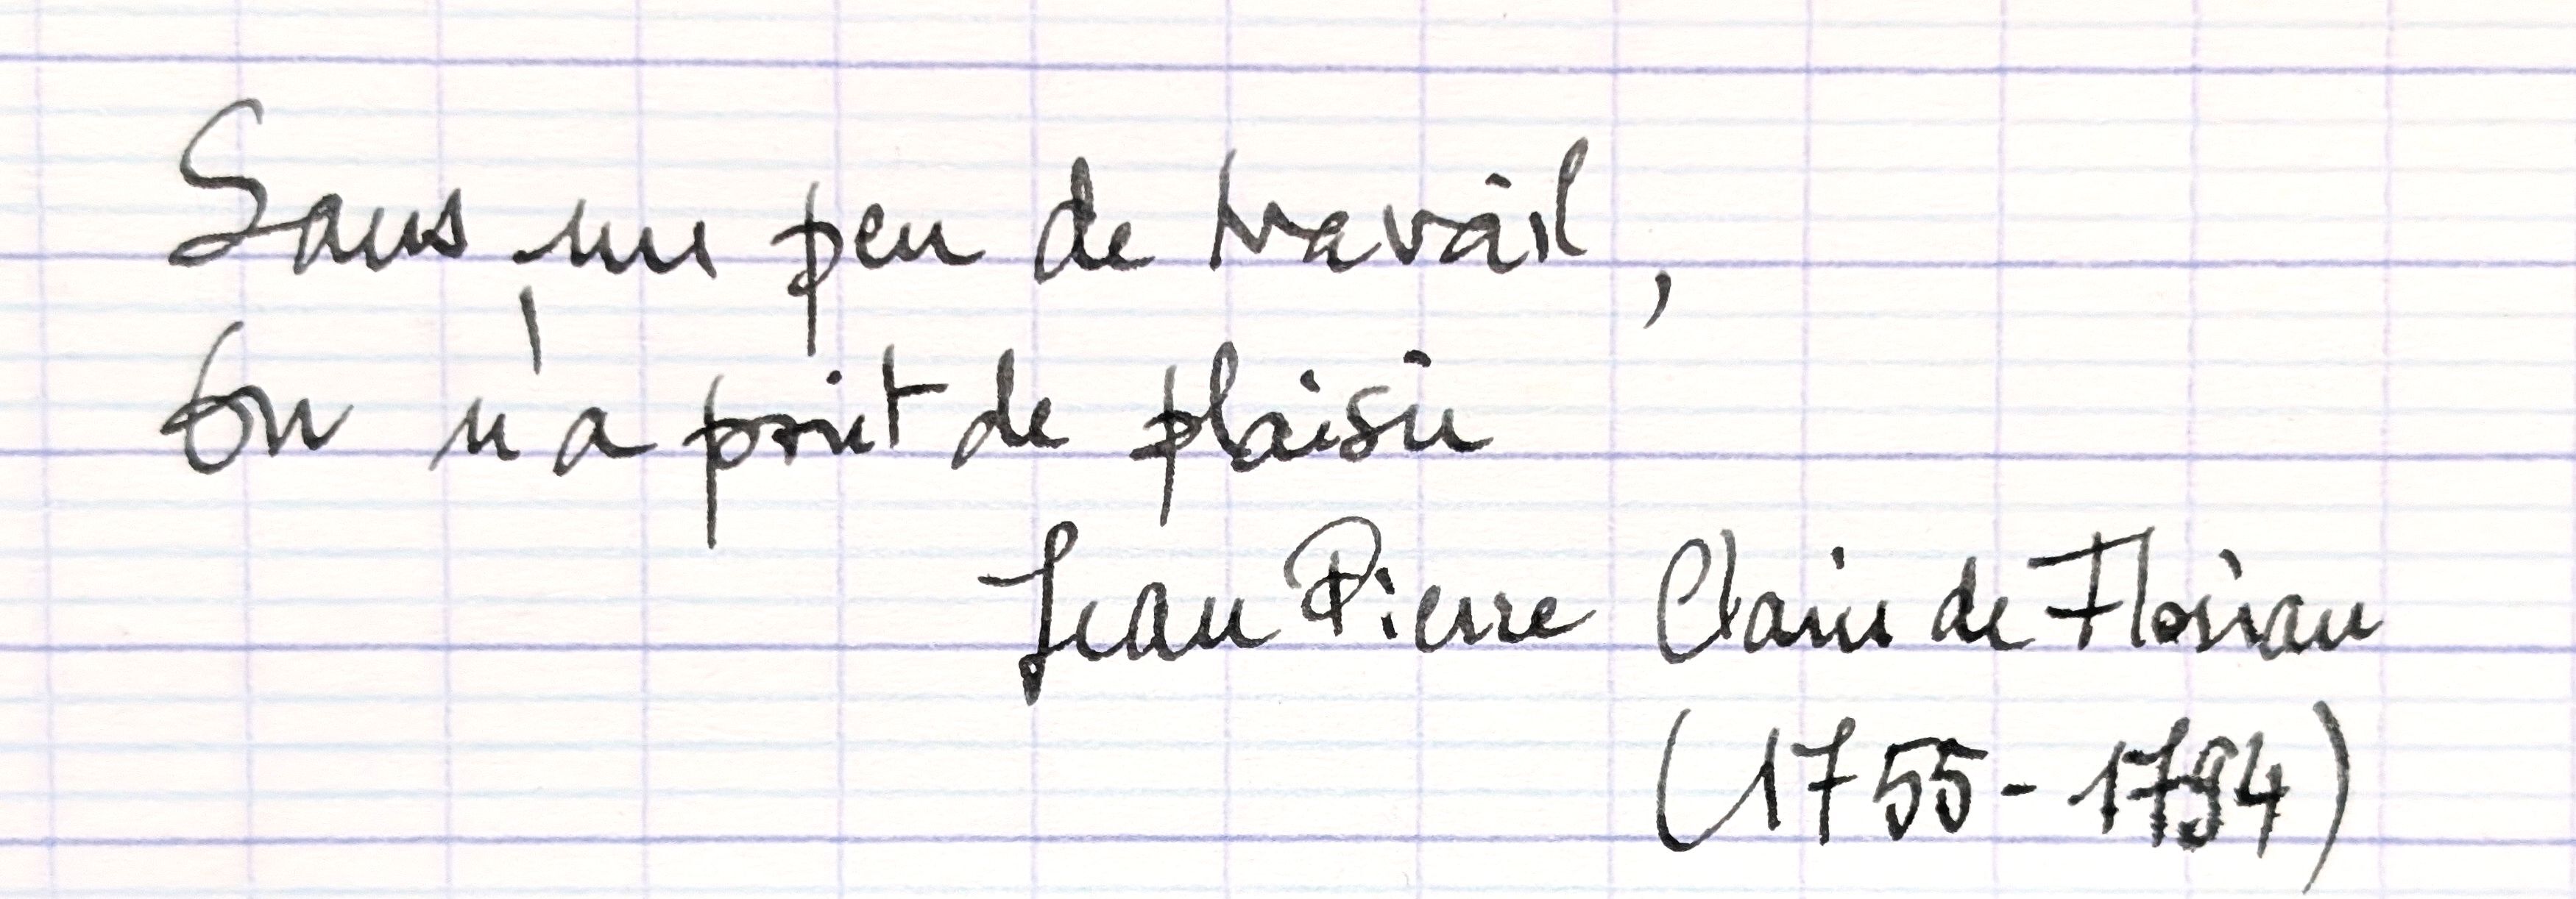 Sans un peu de travail,
On n'a point de plaisir
Jean Pierre Claris de Florian
(1755-1794)